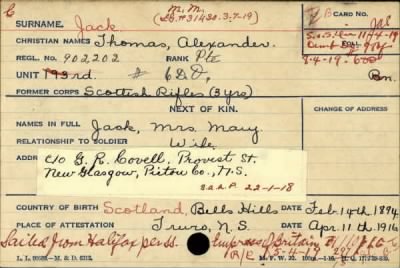 C
M.M.
(L.G.#31430.3.7-19)
SURNAME. Jack
CARD NO.
CHRISTIAN NAMES Thomas, Alexander.
S.O.S. 11/4-19
REGL. NO. 902202 RANK Pte
8-4-19.
UNIT 193rd. Bn.
FORMER CORPS Scottish Rifles (3 yrs)
NEXT OF KIN. CHANGE OF ADDRESS
NAMES IN FULL Jack, Mrs. May
RELATIONSHIP TO SOLDIER Wife
ADDR
c/o G. R. Covell, Provost St.
New Glasgow, Pictou Co., N.S.
22-1-18
COUNTRY OF BIRTH Scotland, Bells Hills DATE Feb. 14th. 1894
PLACE OF ATTESTATION Truro, N.S. DATE Apr. 11th. 1916
Sailed from Halifax per ss. Empress of Britain